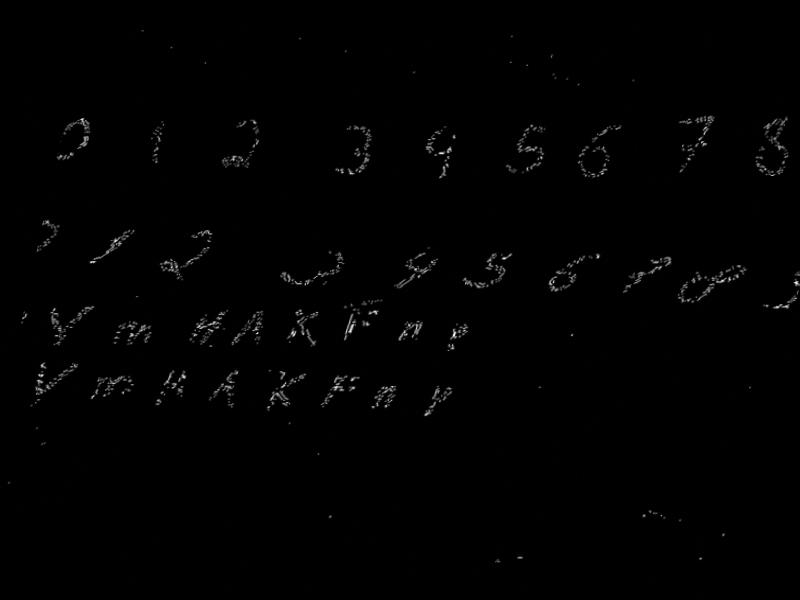 0 1 2 3 4 5 6 7 8
1 2 3 4 5 6 7 8
V m H A K F n p
V m H A K F n p